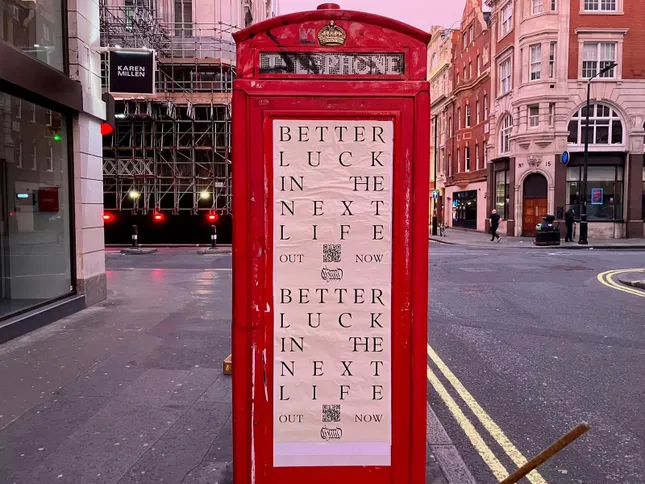 KAREN
MILLEN
TELEPHONE
BETTER
LUCK
IN THE
NEXT
LIFE
OUT NOW
BETTER
LUCK
IN THE
NEXT
LIFE
OUT NOW
No 15